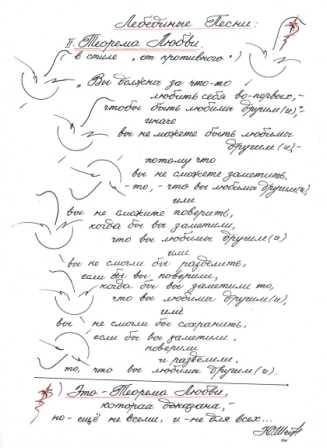 Лебединые Песни:
II. Теорема Любви.
( в стиле „от противного“)
„Вы должны за что-то
любить себя во-первых, -
чтобы быть любимы другим(и),“
иначе
вы не можете быть любимы
другим(и)
потому что
вы не сможете заметить,
- то, - что вы любимы другим(и)
или
вы не сможите поверить,
когда бы вы заметили,
что вы любимы другим(и)
или
вы не смогли бы разделить,
если бы вы поверили,
когда бы вы заметили то,
что вы любимы другим(и),
или
вы не смогли бы сохранить,
если бы вы заметили,
поверили
и разделили,
то, что вы любимы другим(и).
) Это - Теорема Любви,
которая доказана, -
но - ещё не всеми, и - не для всех...